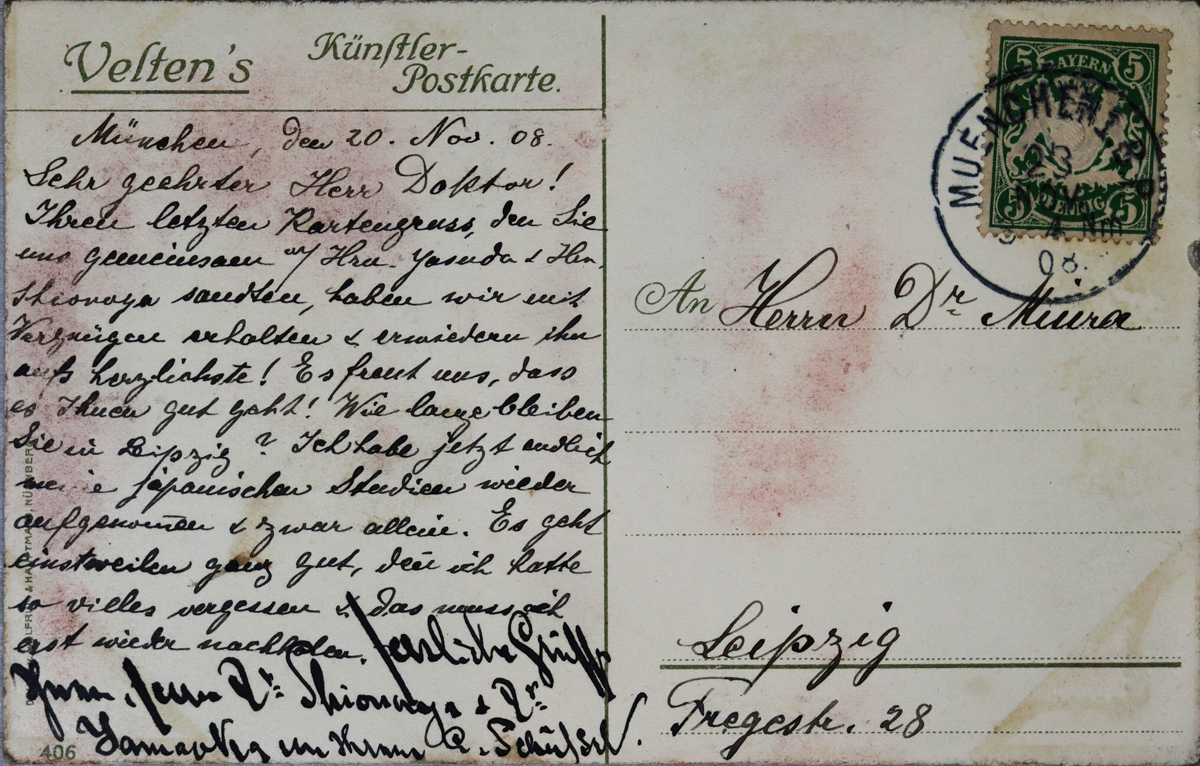 Velten's Künstler-
Postkarte.
München, den 20. Nov. 08.
Sehr geehrter Herr Doktor!
Ihren letzten Kartengruss, den Sie
uns gemeinsam m/ Hrn. Yasuda & Hrn.
Shionoya sandten, haben wir mit
Vergnügen erhalten & erwiedern ihn
aufs herzlichste! Es freut uns, dass
es Ihnen gut geht! Wie lange bleiben
Sie in Leipzig? Ich habe jetzt endlich
meine japanischen Studien wieder
aufgenom̄en & zwar allein. Es geht
einstweilen ganz gut, den̄ ich hatte
so vieles vergessen & das muss ich
erst wieder nachholen. Herzliche Grüsse
Ihnen, Herrn Dr. Shionoya & Dr.
von Ihrem
406
BAYERN
5 5
PFENNIG
5 5
MUENCHEN
23
NOV.
Nm
08.
An Herrn Dr. Miura
Leipzig
Fregestr. 28